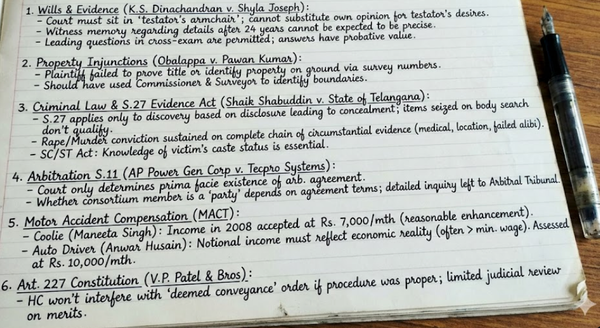 1. Wills & Evidence (K.S. Dinachandran v. Shyla Joseph):
- Court must sit in 'testator's armchair'; cannot substitute own opinion for testator's desires.
- Witness memory regarding details after 24 years cannot be expected to be precise.
- Leading questions in cross-exam are permitted; answers have probative value.
2. Property Injunctions (Obalappa v. Pawan Kumar):
- Plaintiff failed to prove title or identify property on ground via survey numbers.
- Should have used Commissioner & Surveyor to identify boundaries.
3. Criminal Law & S.27 Evidence Act (Shaik Shabuddin v. State of Telangana):
- S.27 applies only to discovery based on disclosure leading to concealment; items seized on body search
don't qualify.
- Rape/Murder conviction sustained on complete chain of circumstantial evidence (medical, location, failed alibi).
- SC/ST Act: Knowledge of victim's caste status is essential.
4. Arbitration S.11 (AP Power Gen Corp v. Tecpro Systems):
- Court only determines prima facie existence of arb. agreement.
- Whether consortium member is a 'party' depends on agreement terms; detailed inquiry left to Arbitral Tribunal.
5. Motor Accident Compensation (MACT):
- Coolie (Maneeta Singh): Income in 2008 accepted at Rs. 7,000/mth (reasonable enhancement).
- Auto Driver (Anwar Husain): Notional income must reflect economic reality (often > min. wage). Assessed
at Rs. 10,000/mth.
6. Art. 227 Constitution (V.P. Patel & Bros):
- HC won't interfere with 'deemed conveyance' order if procedure was proper; limited judicial review
on merits.